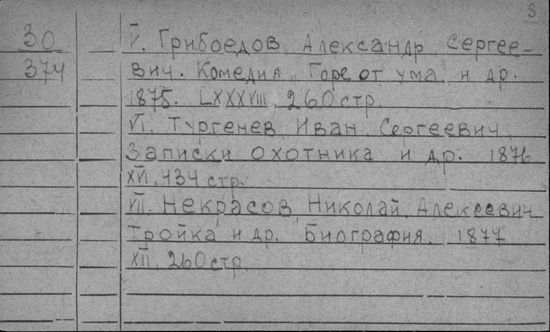 3
30
374
V. Грибоедов, Александр Сергее-
вич. Комедия „Горе от ума“ и др.
1875. LXXXVIII, 260 стр.
VI. Тургенев, Иван Сергеевич.
Записки охотника и др. 1876
XVI, 434 стр.
VII. Некрасов, Николай Алексеевич
Тройка и др. Биография. 1877
XII, 260 стр.